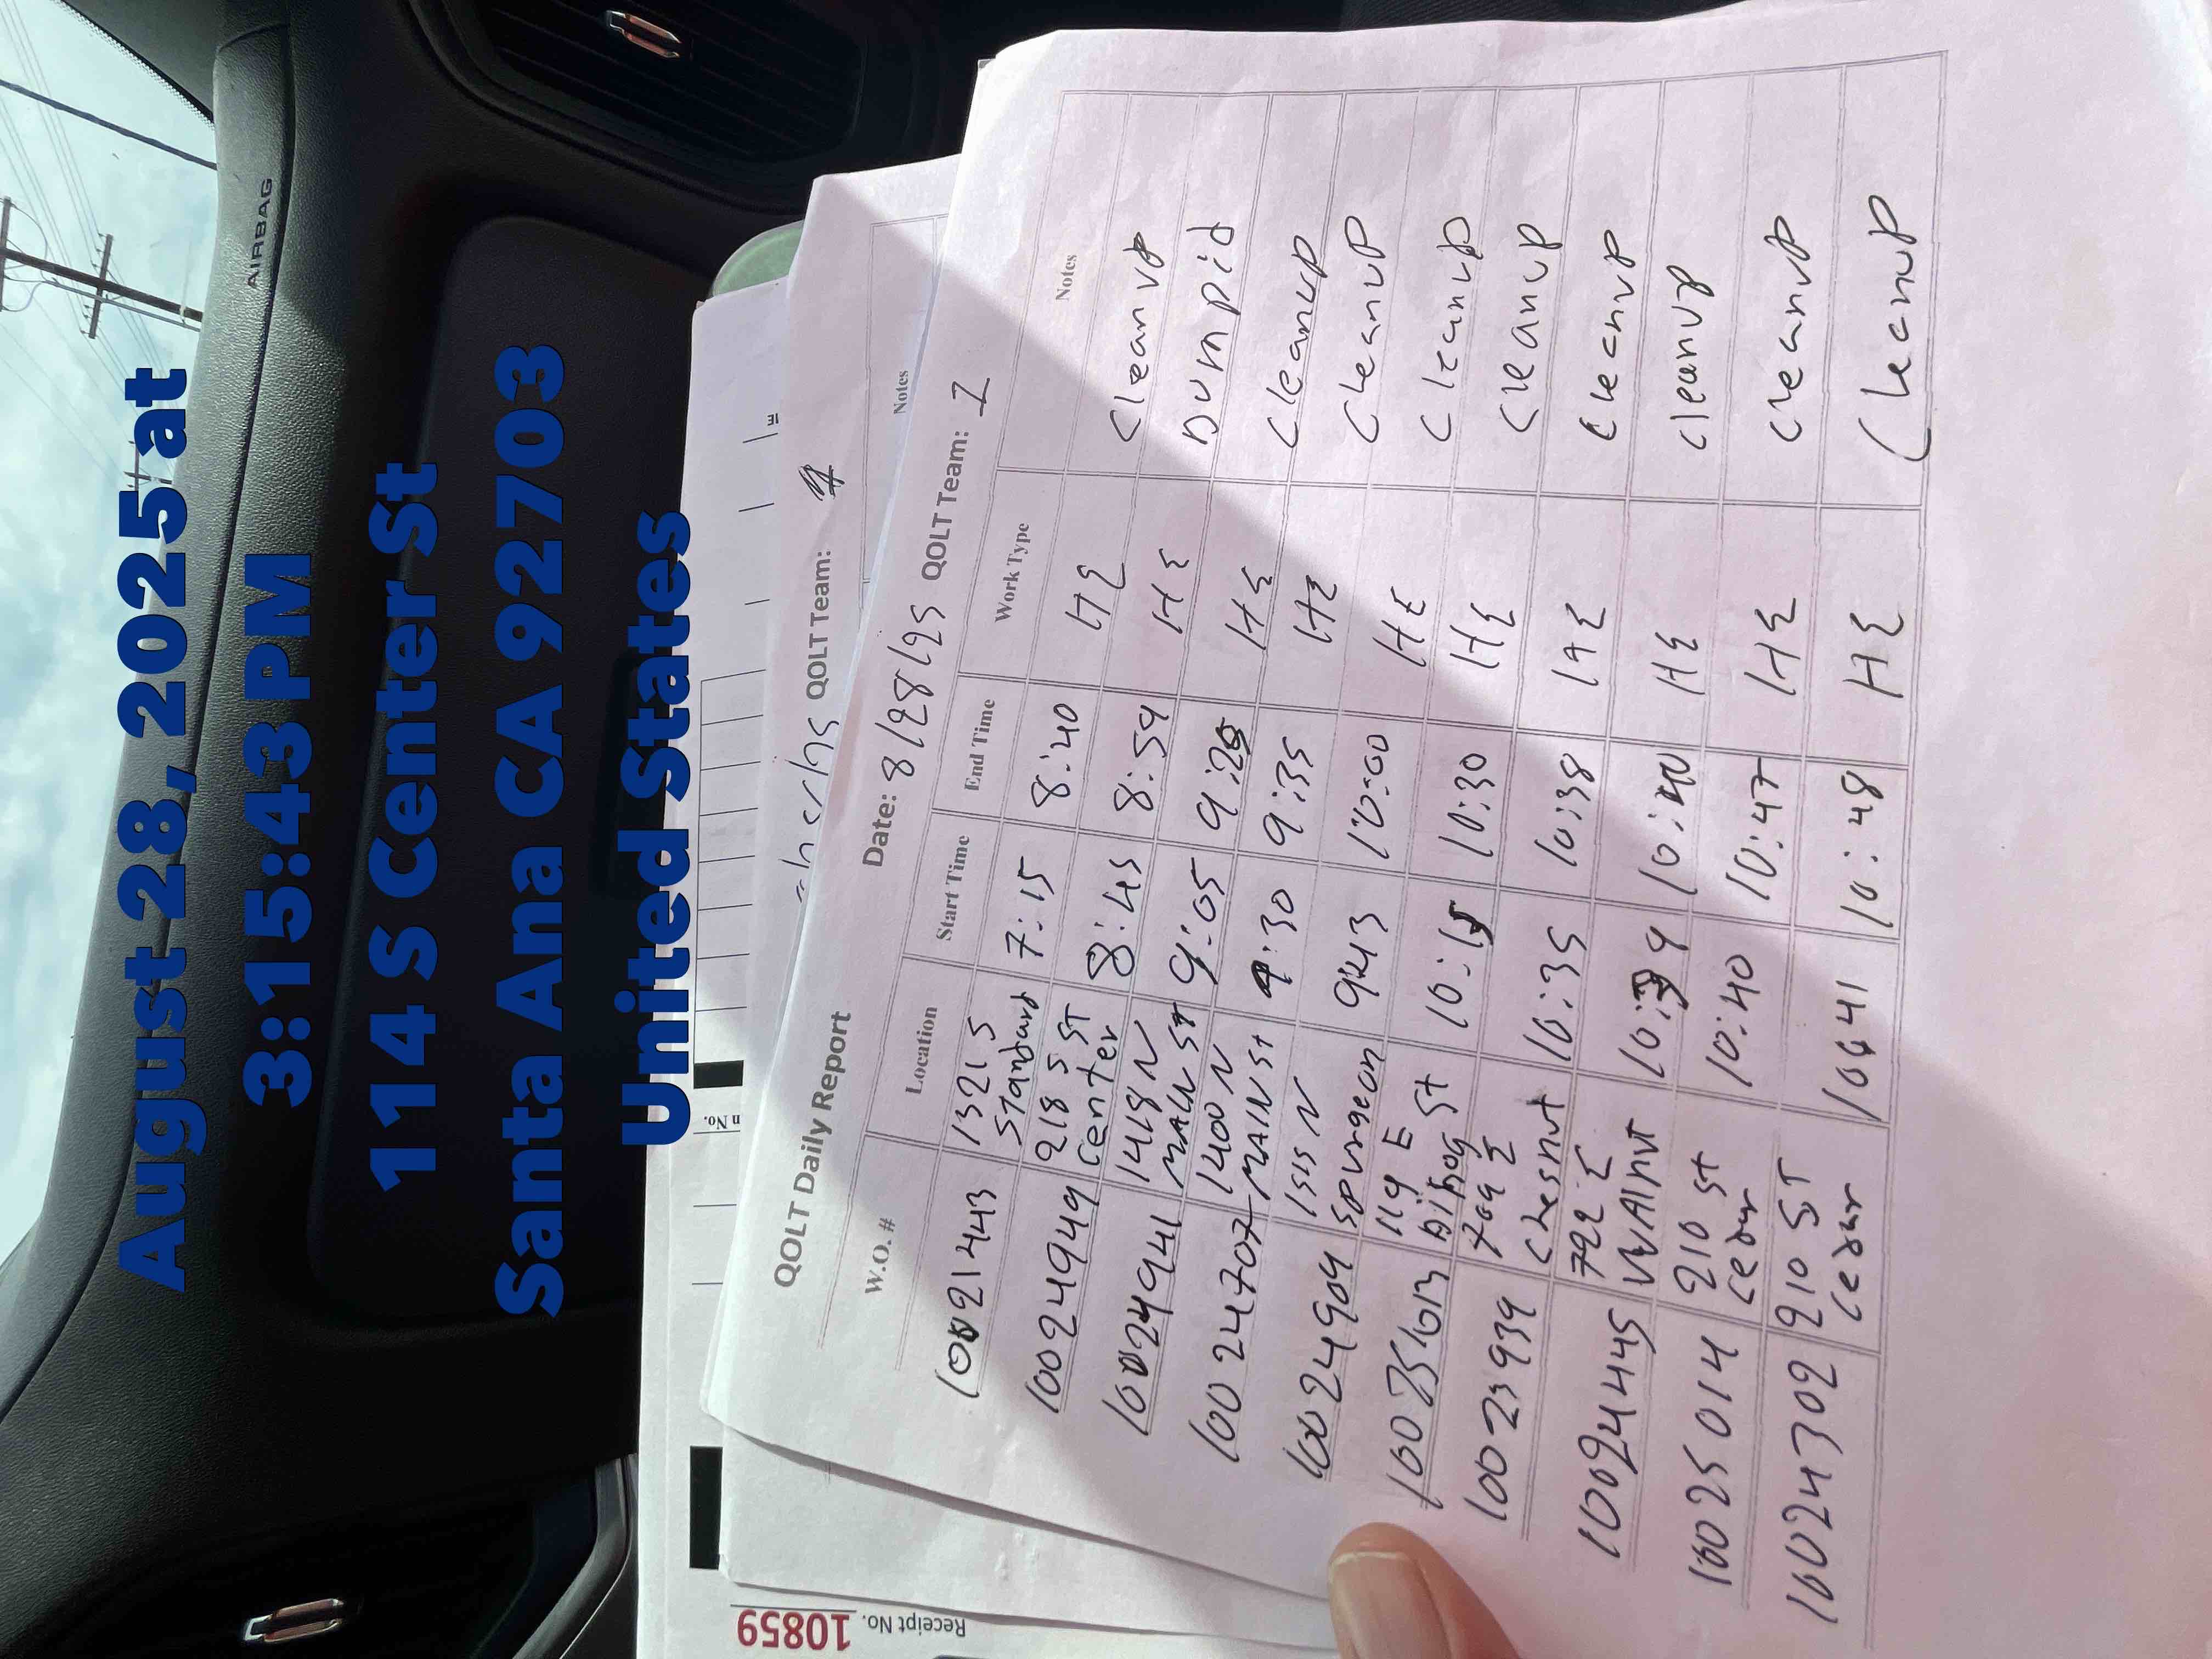 August 28, 2025 at
3:15:43 PM
114 S Center St
Santa Ana CA 92703
United States
AIRBAG
Receipt No. 10859
n No.
QOLT Team:
Notes
QOLT Daily Report
Date: 8/28/25 QOLT Team: 1
W.O. # Location Start Time End Time Work Type Notes
10021443 1321 S Standard 7:15 8:40 HE Cleanup
10024949 218 S ST Center 8:45 8:59 HE Dumpid
10024941 1418 N MAIN St 9:05 9:25 HE Cleanup
10024707 1400 N MAIN St 9:30 9:35 HE Cleanup
10024909 1515 N Spurgeon 9:43 10:00 HE Cleanup
119 E 10:15 10:30 HE Cleanup
10023939 E Chesnut 10:35 10:38 HE Cleanup
10024445 722 E WAlnut 10:39 10:40 HE cleanup
10025014 210 St cedar 10:40 10:47 HE Cleanup
10024302 210 ST cedar 10:48 HE Cleanup